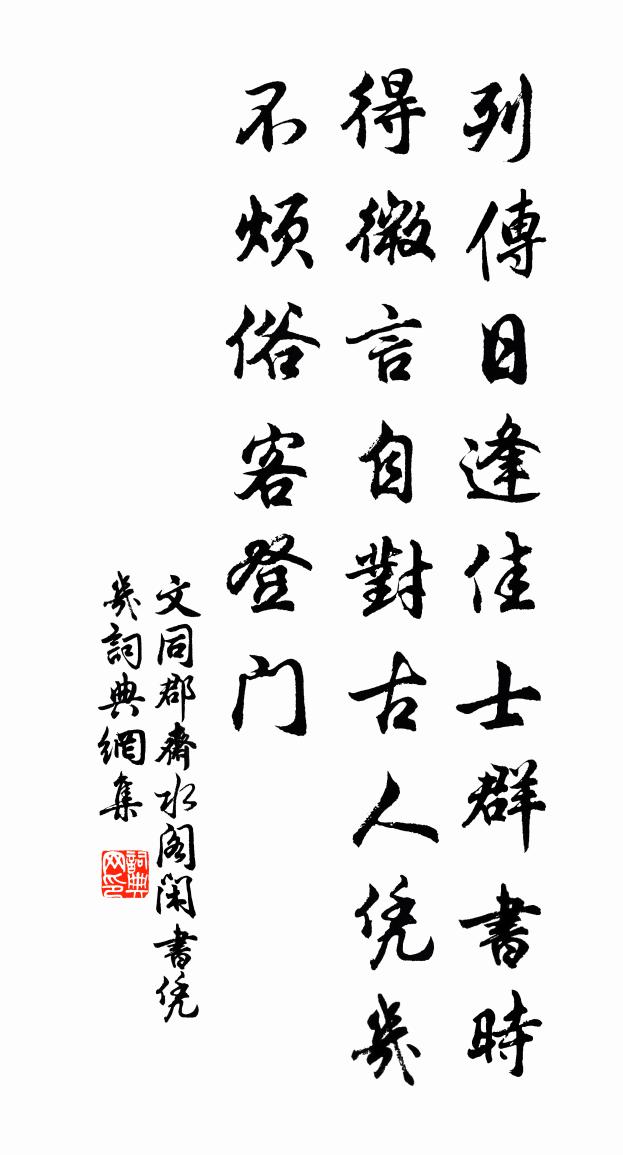 列傳日逢佳士群書時
得微言自對古人凭几
不煩俗客登门
文同郡齋水阁闲書凭
几詞典網集
詞典网印